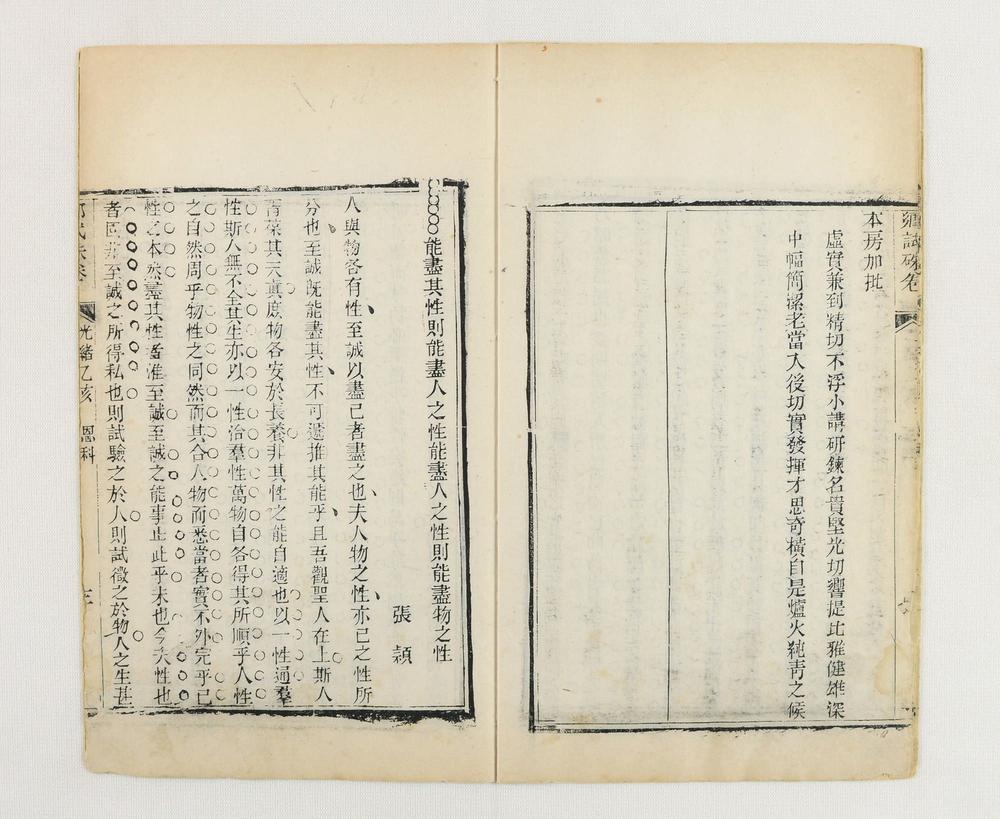 鄉試硃卷
本房加批
虛實兼到精切不浮小講研鍊名貴堅光切響提比雅健雄深
中幅簡潔老當入後切實發揮才思奇橫自是爐火純青之候
能盡其性則能盡人之性能盡人之性則能盡物之性
張穎
人與物各有性至誠以盡己者盡之也夫人物之性亦己之性所
分也至誠既能盡其性不可遞推其能乎且吾觀聖人在上斯人
皆葆其天真庶物各安於長養非其性之能自適也以一性通羣
性斯人無不全其生亦以一性治羣性萬物自各得其所順乎人性
之自然周乎物性之同然而其合人物而悉當者實不外完乎己
性之本然盡其性者惟至誠至誠之能事止此乎未也今夫性也
者固非至誠之所得私也則試驗之於人則試徵之於物人之生甚
光緒乙亥 恩科